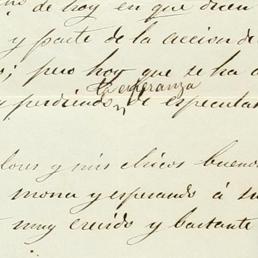 de hoy en que dicen
y parte de la accion de
; pero hoy que se ha
la esperanza
y perdimos de especular
lores y mis chicos buenos
mona y esperando á su
muy crecido y bastante